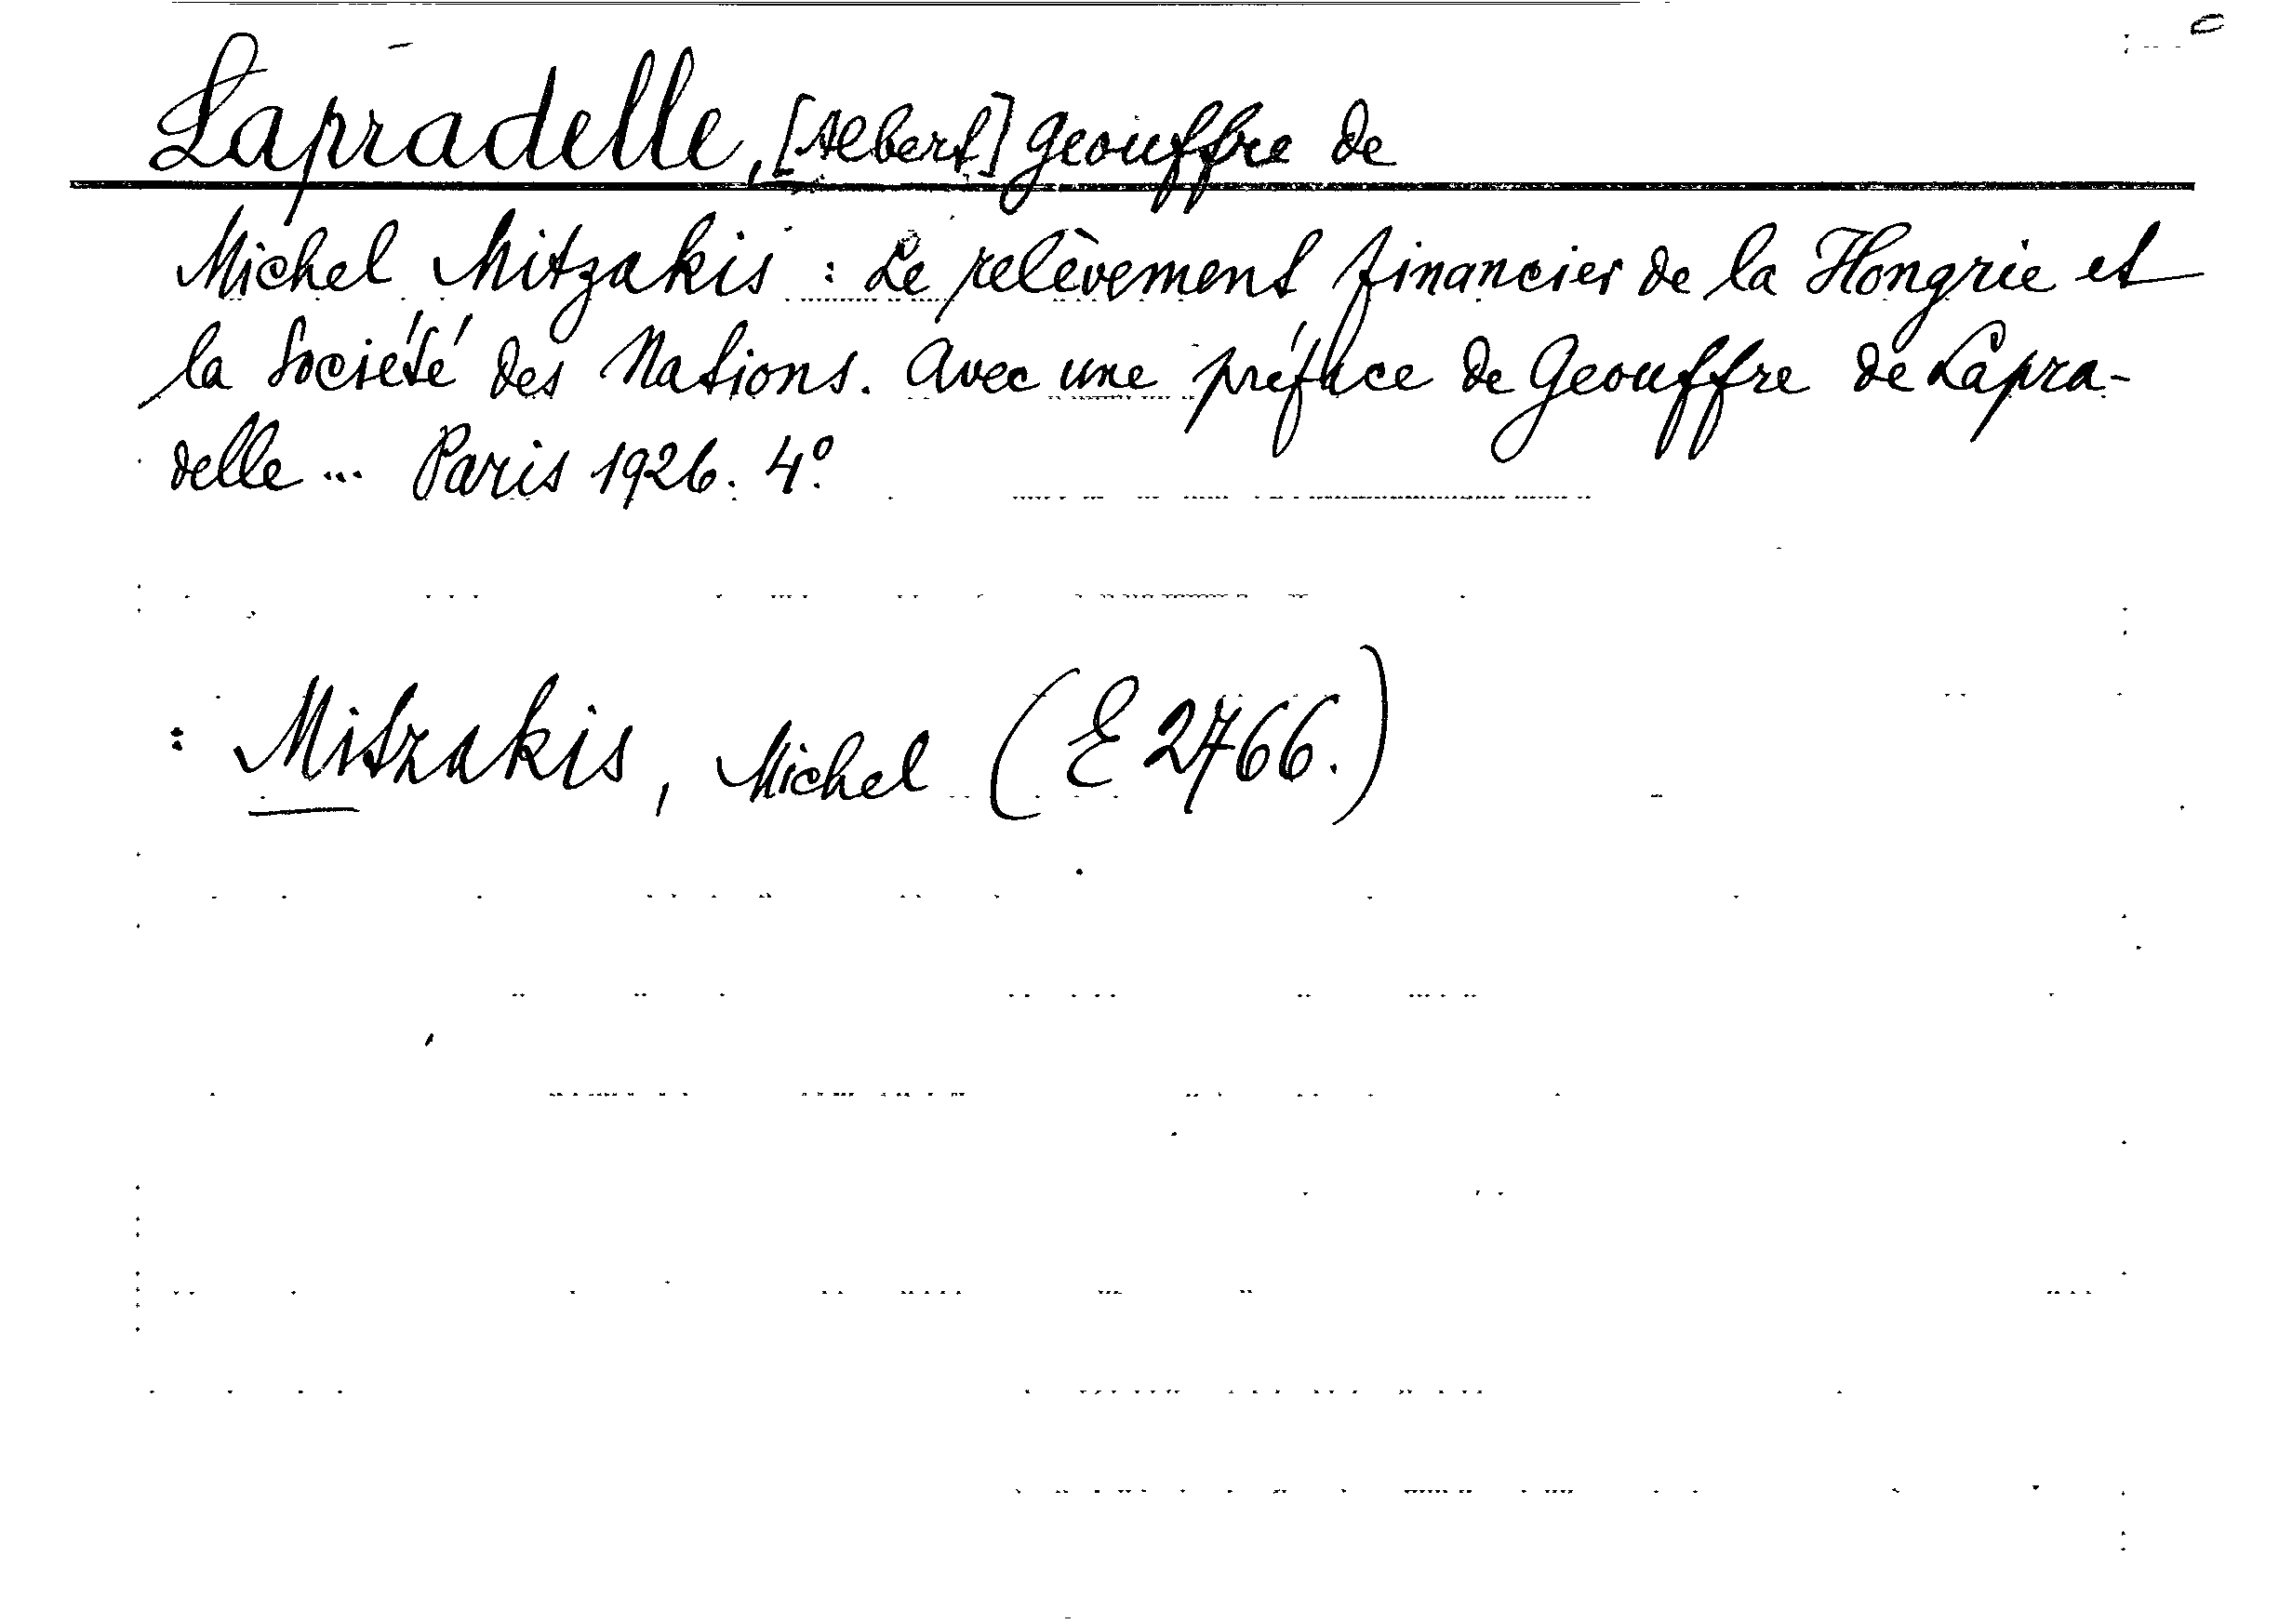 Lapradelle, [Albert] Geouffre de
Michel Mitzakis : Le relèvement financier de la Hongrie et
la Société des Nations. Avec une préface de Geouffre de Lapra-
delle ... Paris 1926. 4°.
: Mitzakis, Michel (E 2766.)